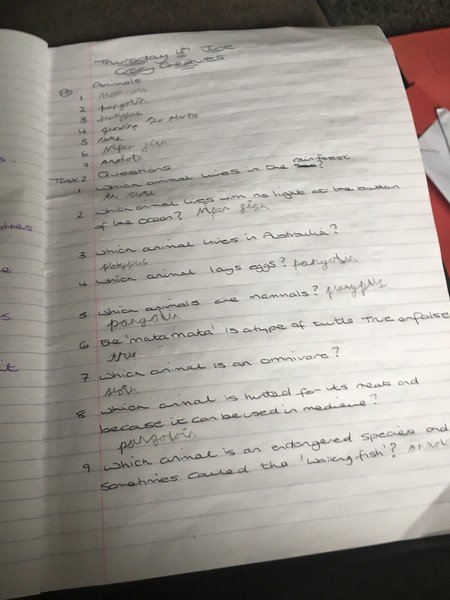 Thursday 4th June
Crazy Creatures
Animals
1
2 pangolin
3 Platypus
4 turtle
5
6 Viper fish
7 axolotl
Task 2 Questions
1 Which animal lives in the rainforest?
2 which animal lives with no light at the bottom
of the ocean? Viper fish
3 which animal lives in Australia?
Platypus
4 which animal lays eggs? pangolin
5 which animals are mammals? platypus
pangolin
6 the 'mata mata' is a type of turtle True or false
true
7 which animal is an omnivore?
sloth
8 which animal is hunted for its meat and
because it can be used in medicine?
pangolin
9 which animal is an endangered species and
sometimes called the 'walking fish'?